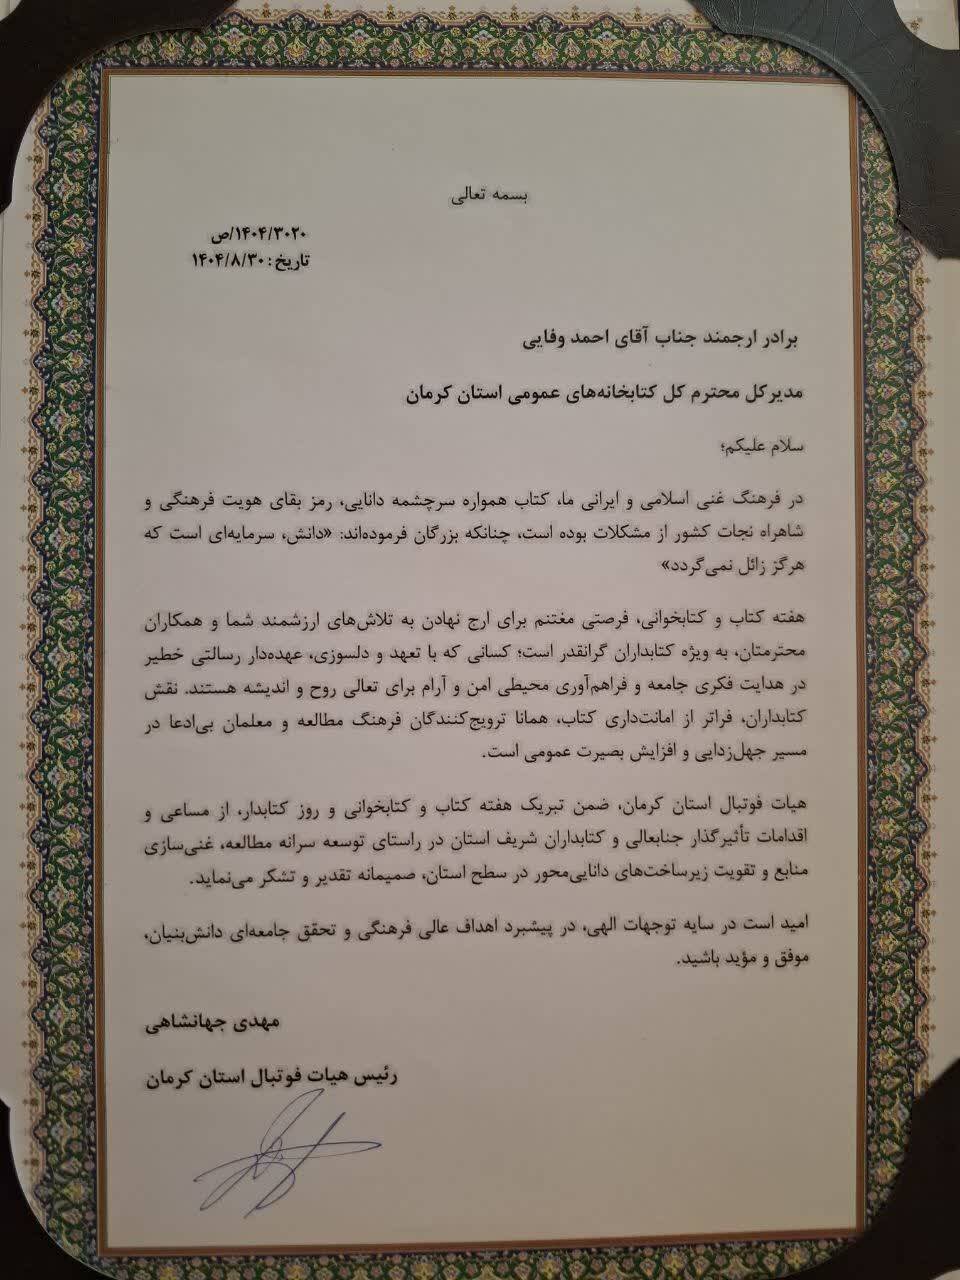 بسمه تعالی
۱۴۰۴/۳۰۲۰/ص
تاریخ: ۱۴۰۴/۸/۳۰
برادر ارجمند جناب آقای احمد وفایی
مدیرکل محترم کل کتابخانه‌های عمومی استان کرمان
سلام علیکم؛
در فرهنگ غنی اسلامی و ایرانی ما، کتاب همواره سرچشمه دانایی، رمز بقای هویت فرهنگی و
شاهراه نجات کشور از مشکلات بوده است، چنانکه بزرگان فرموده‌اند: «دانش، سرمایه‌ای است که
هرگز زائل نمی‌گردد»
هفته کتاب و کتابخوانی، فرصتی مغتنم برای ارج نهادن به تلاش‌های ارزشمند شما و همکاران
محترمتان، به ویژه کتابداران گرانقدر است؛ کسانی که با تعهد و دلسوزی، عهده‌دار رسالتی خطیر
در هدایت فکری جامعه و فراهم‌آوری محیطی امن و آرام برای تعالی روح و اندیشه هستند. نقش
کتابداران، فراتر از امانت‌داری کتاب، همانا ترویج‌کنندگان فرهنگ مطالعه و معلمان بی‌ادعا در
مسیر جهل‌زدایی و افزایش بصیرت عمومی است.
هیات فوتبال استان کرمان، ضمن تبریک هفته کتاب و کتابخوانی و روز کتابدار، از مساعی و
اقدامات تأثیرگذار جنابعالی و کتابداران شریف استان در راستای توسعه سرانه مطالعه، غنی‌سازی
منابع و تقویت زیرساخت‌های دانایی‌محور در سطح استان، صمیمانه تقدیر و تشکر می‌نماید.
امید است در سایه توجهات الهی، در پیشبرد اهداف عالی فرهنگی و تحقق جامعه‌ای دانش‌بنیان،
موفق و مؤید باشید.
مهدی جهانشاهی
رئیس هیات فوتبال استان کرمان